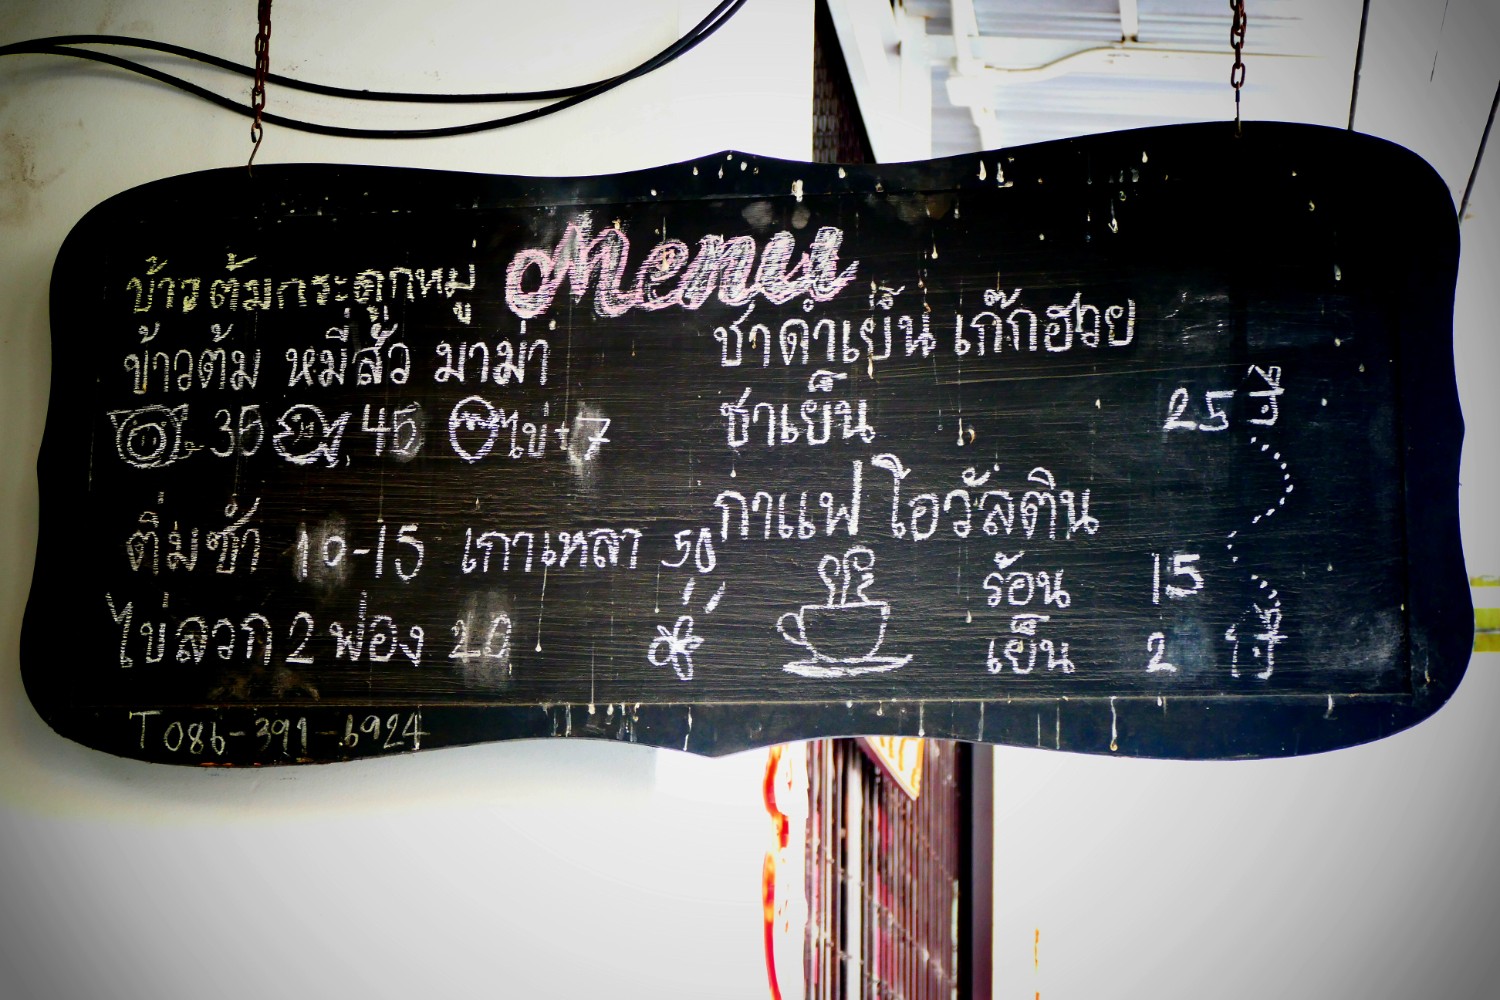 Menu
ข้าวต้มกระดูกหมู
ข้าวต้ม หมี่สั้ว มาม่า
35 45 ไข่+7
ติ่มซำ 10-15 เกาเหลา 50
ไข่ลวก 2 ฟอง 20
T 086-391-6924
ชาดำเย็น เก๊กฮวย
ชาเย็น 25
กาแฟ โอวัลติน
ร้อน 15
เย็น 2